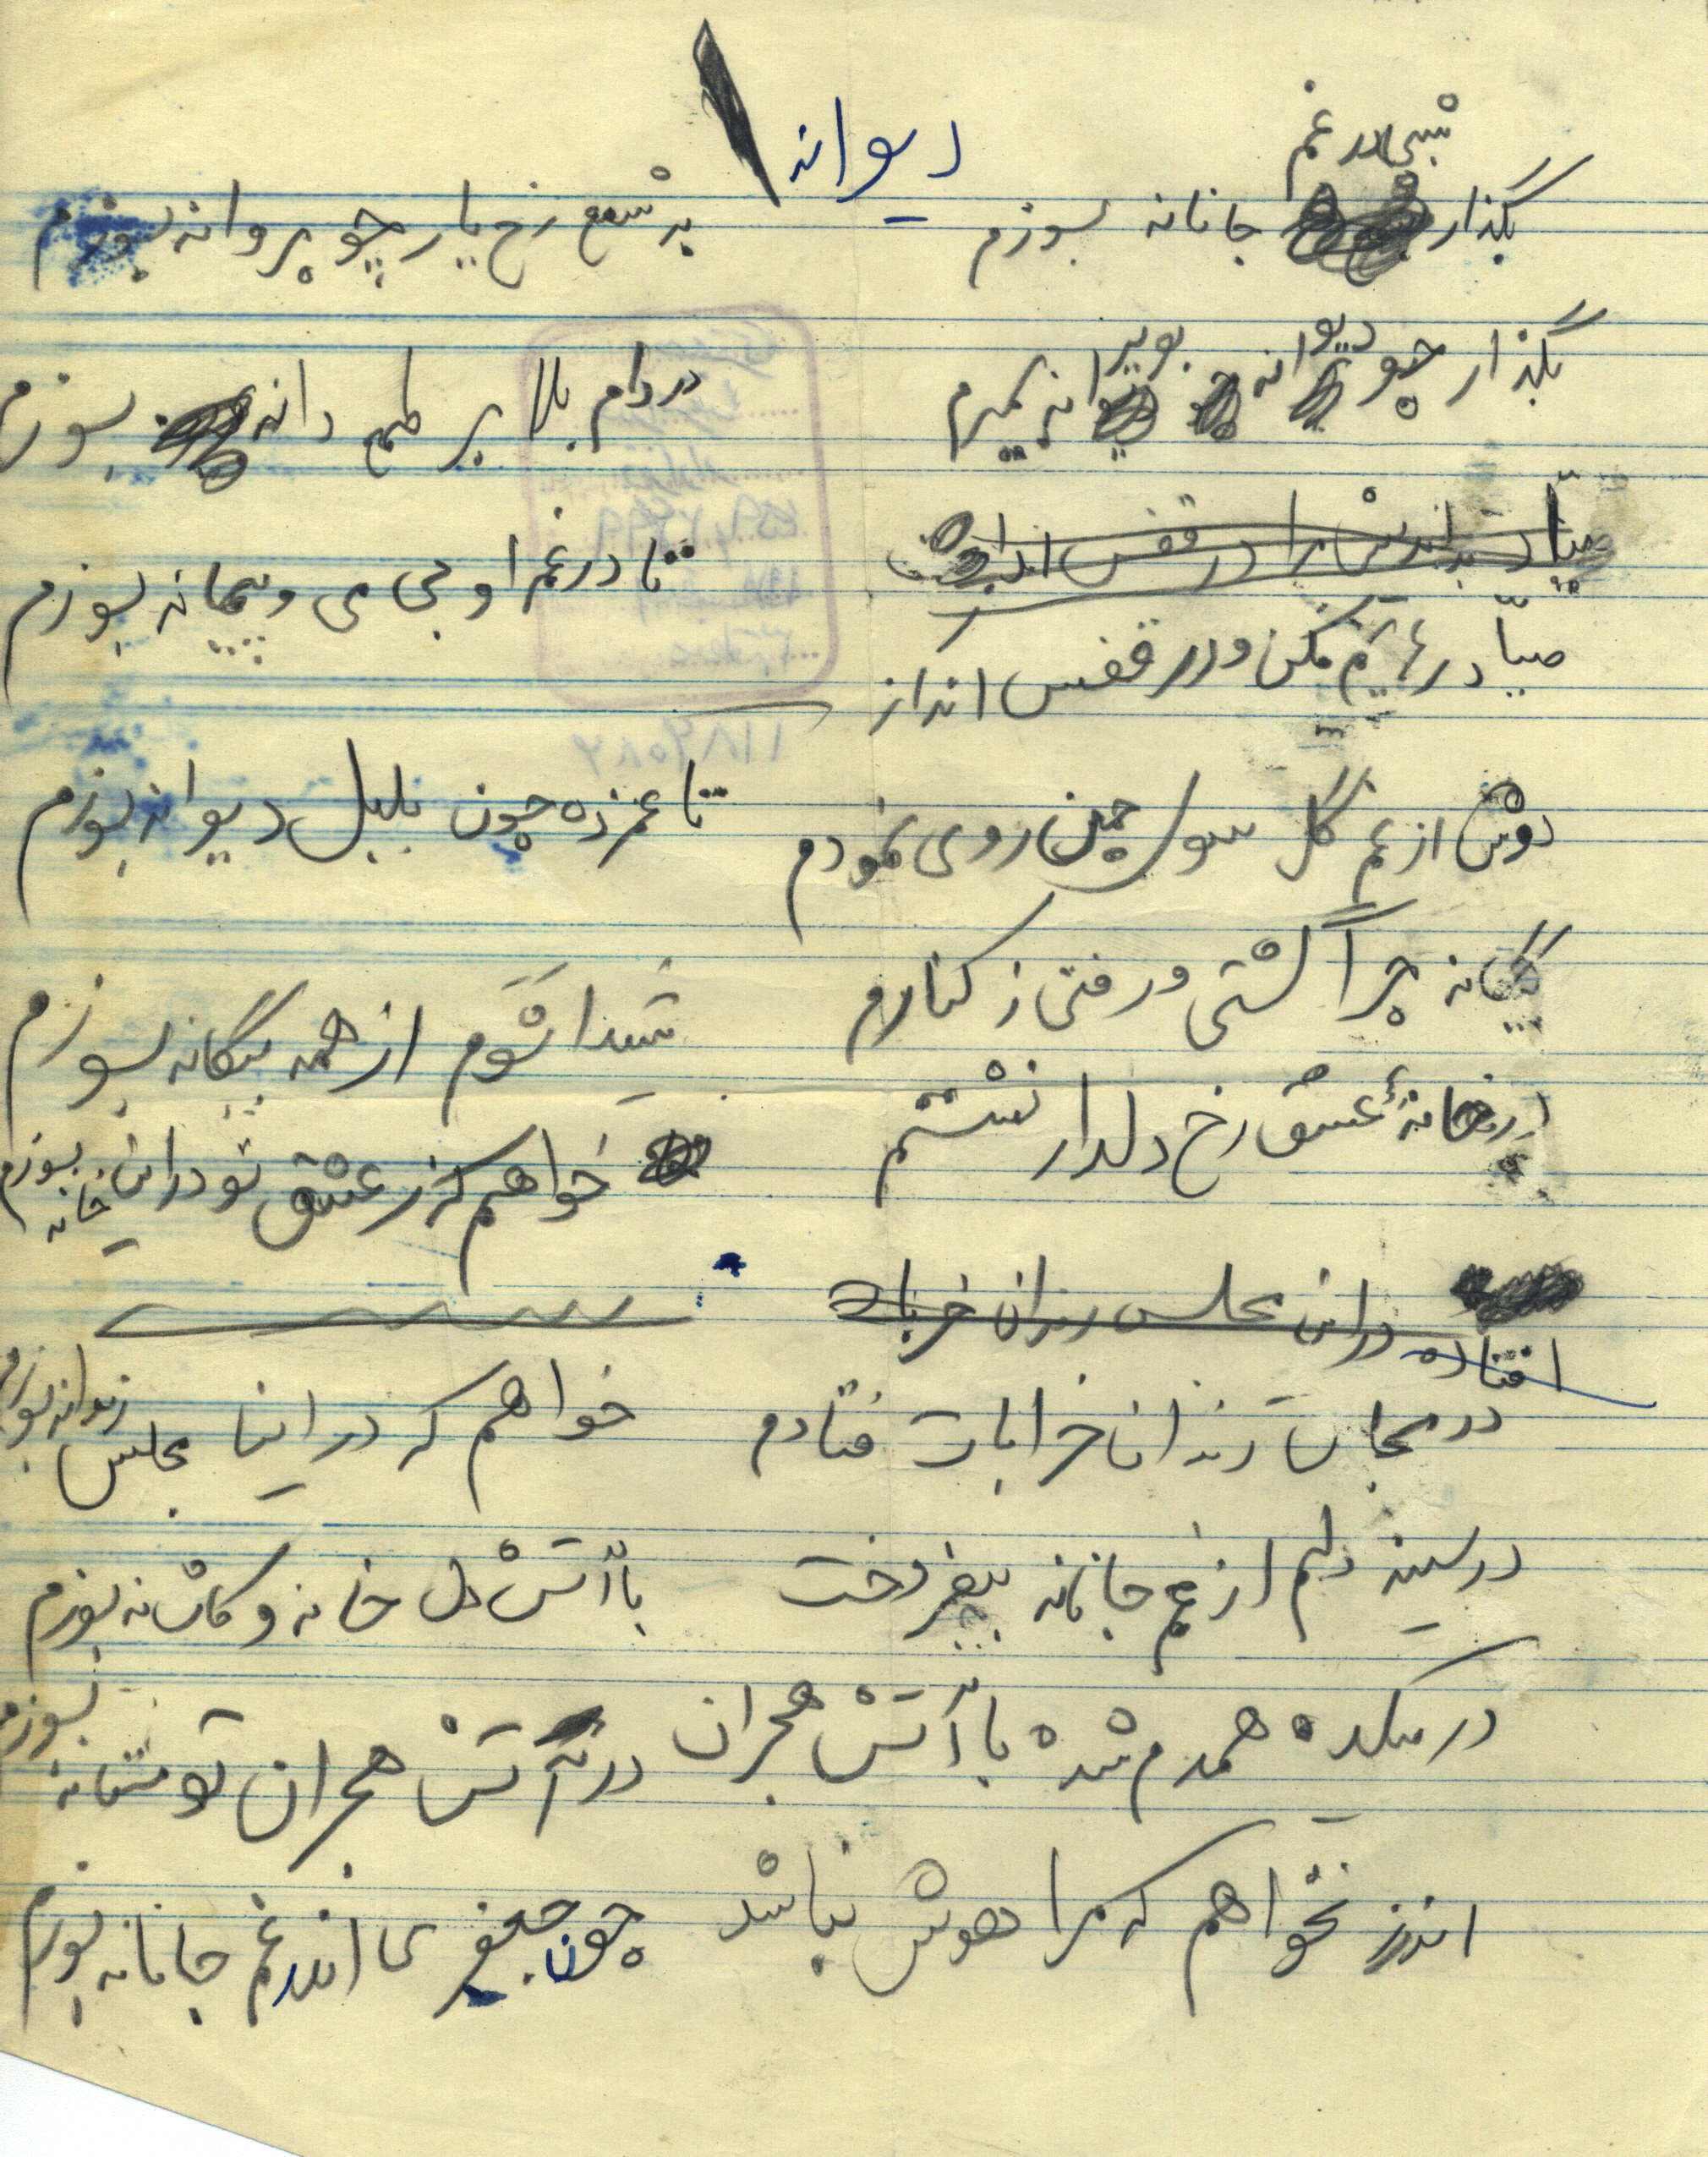 دیوانه
بگذار شبی در غم جانانه بسوزم
بر شمع رخ یار چو پروانه بسوزم
بگذار چو دیوانه بویرانه بمیرم
در دام بلا بر طمع دانه بسوزم
صیاد در قفس
صیّاد رهایم مکن و در قفس انداز
تا در غم او بی می و پیمانه بسوزم
دوش از غم گل سوی چمن روی نمودم
تا غمزده چون بلبل دیوانه بسوزم
بیگانه چرا گشتی و رفتی ز کنارم
شیدا شوم از همه بیگانه بسوزم
در خانهٔ عشق رخ دلدار نشستم
خواهم که ز عشق تو در این خانه بسوزم
افتاده در این مجلس رندان خرابات
در مجلس رندان خرابات فتادم
خواهم که در این مجلس رندانه بسوزم
در سینه دلم از غم جانانه بیفروخت
با آتش دل خانه و کاشانه بسوزم
در میکده همدم شده با آتش هجران
در آتش هجران تو مستانه بسوزم
اندرز نخواهم که مرا هوش نباشد
چون جعفری اندر غم جانانه بسوزم